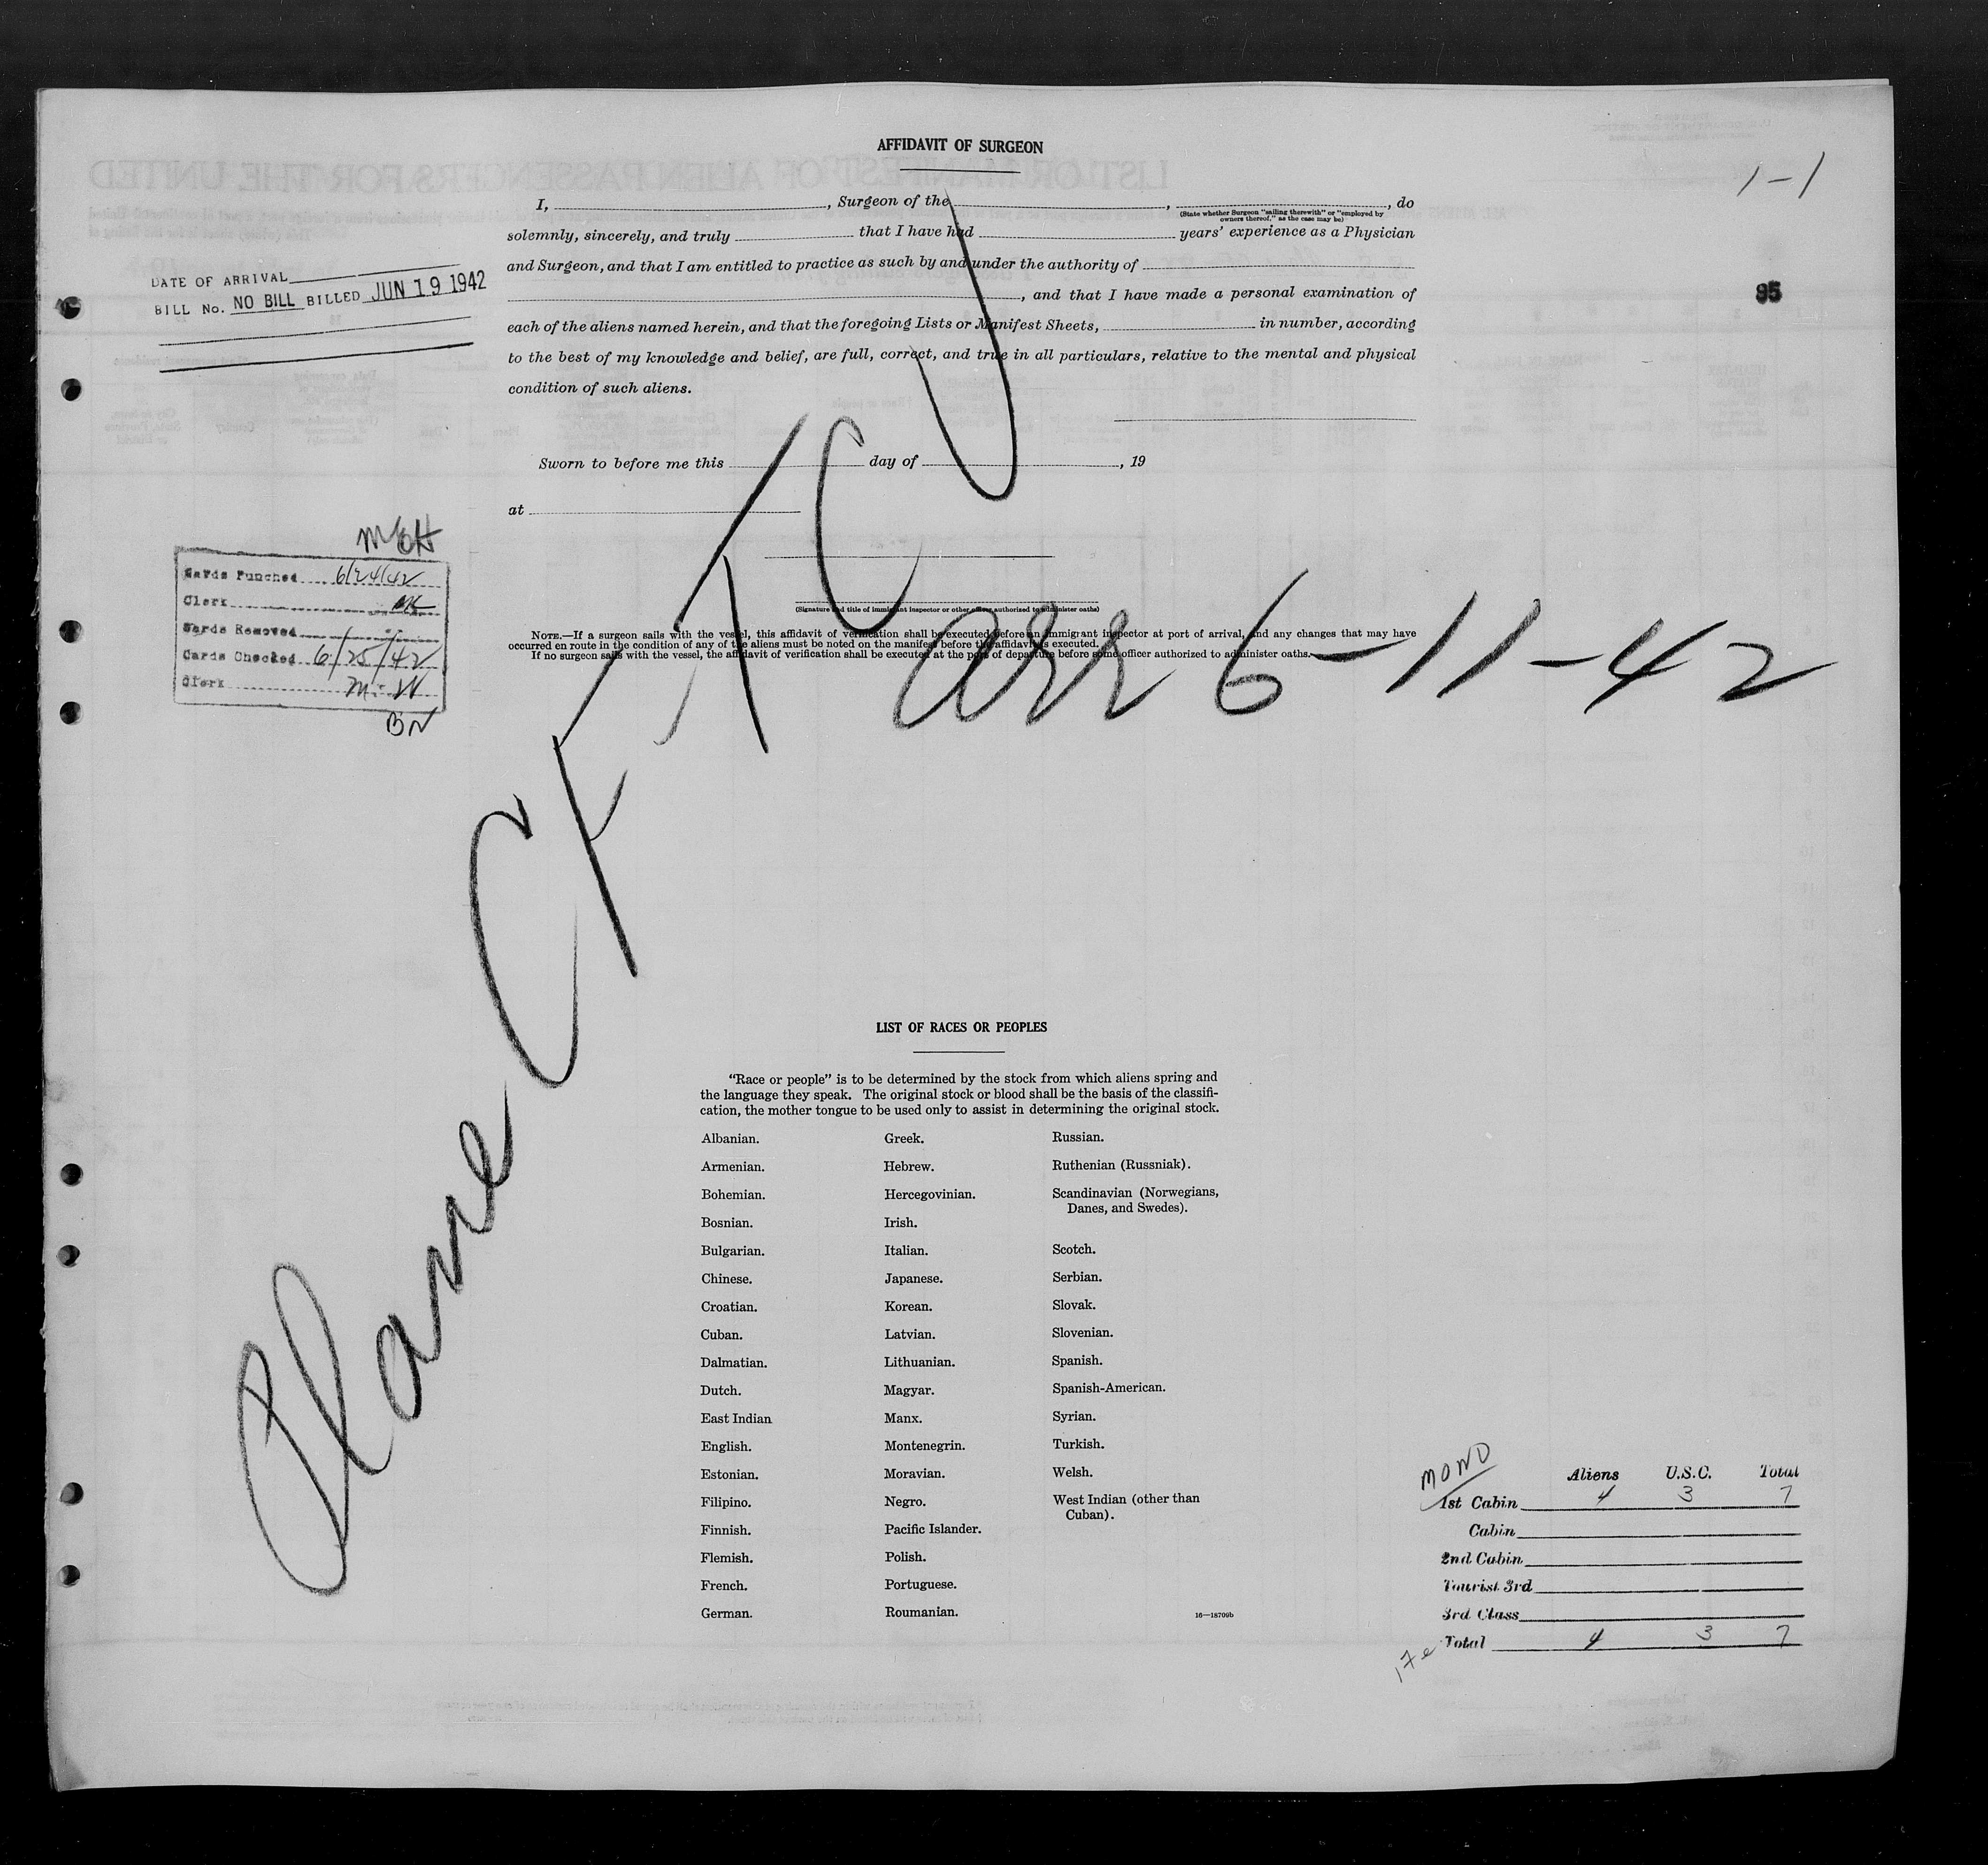 AFFIDAVIT OF SURGEON
1-1
I, , Surgeon of the , , do
(State whether Surgeon "sailing therewith" or "employed by
owners thereof," as the case may be)
solemnly, sincerely, and truly that I have had years' experience as a Physician
and Surgeon, and that I am entitled to practice as such by and under the authority of
, and that I have made a personal examination of
each of the aliens named herein, and that the foregoing Lists or Manifest Sheets, in number, according
to the best of my knowledge and belief, are full, correct, and true in all particulars, relative to the mental and physical
condition of such aliens.
DATE OF ARRIVAL
BILL No. NO BILL BILLED JUN 19 1942
95
Sworn to before me this day of , 19
at
(Signature and title of immigrant inspector or other officer authorized to administer oaths)
NOTE.—If a surgeon sails with the vessel, this affidavit of verification shall be executed before an immigrant inspector at port of arrival, and any changes that may have
occurred en route in the condition of any of the aliens must be noted on the manifest before the affidavit is executed.
If no surgeon sails with the vessel, the affidavit of verification shall be executed at the port of departure before some officer authorized to administer oaths.
MEH
Cards Punched 6/24/42
Clerk
Cards Removed
Cards Checked 6/25/42
Clerk M.W
BN
Plane CF-TCJ
arr 6-11-42
LIST OF RACES OR PEOPLES
"Race or people" is to be determined by the stock from which aliens spring and
the language they speak. The original stock or blood shall be the basis of the classifi-
cation, the mother tongue to be used only to assist in determining the original stock.
Albanian. Greek. Russian.
Armenian. Hebrew. Ruthenian (Russniak).
Bohemian. Hercegovinian. Scandinavian (Norwegians,
Danes, and Swedes).
Bosnian. Irish.
Bulgarian. Italian. Scotch.
Chinese. Japanese. Serbian.
Croatian. Korean. Slovak.
Cuban. Latvian. Slovenian.
Dalmatian. Lithuanian. Spanish.
Dutch. Magyar. Spanish-American.
East Indian Manx. Syrian.
English. Montenegrin. Turkish.
Estonian. Moravian. Welsh.
Filipino. Negro. West Indian (other than
Cuban).
Finnish. Pacific Islander.
Flemish. Polish.
French. Portuguese.
German. Roumanian.
16—18709b
MONO
Aliens U.S.C. Total
1st Cabin 4 3 7
Cabin
2nd Cabin
Tourist 3rd
3rd Class
Total 4 3 7
17e